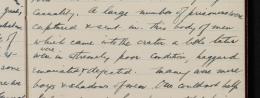 Casualty. A large number of prisoners were
captured & sent in. This body of men
which came into the crater a little later
were in extremely poor condition, haggard
emaciated & dejected. Many were mere
boys & shadows of men. One could not help